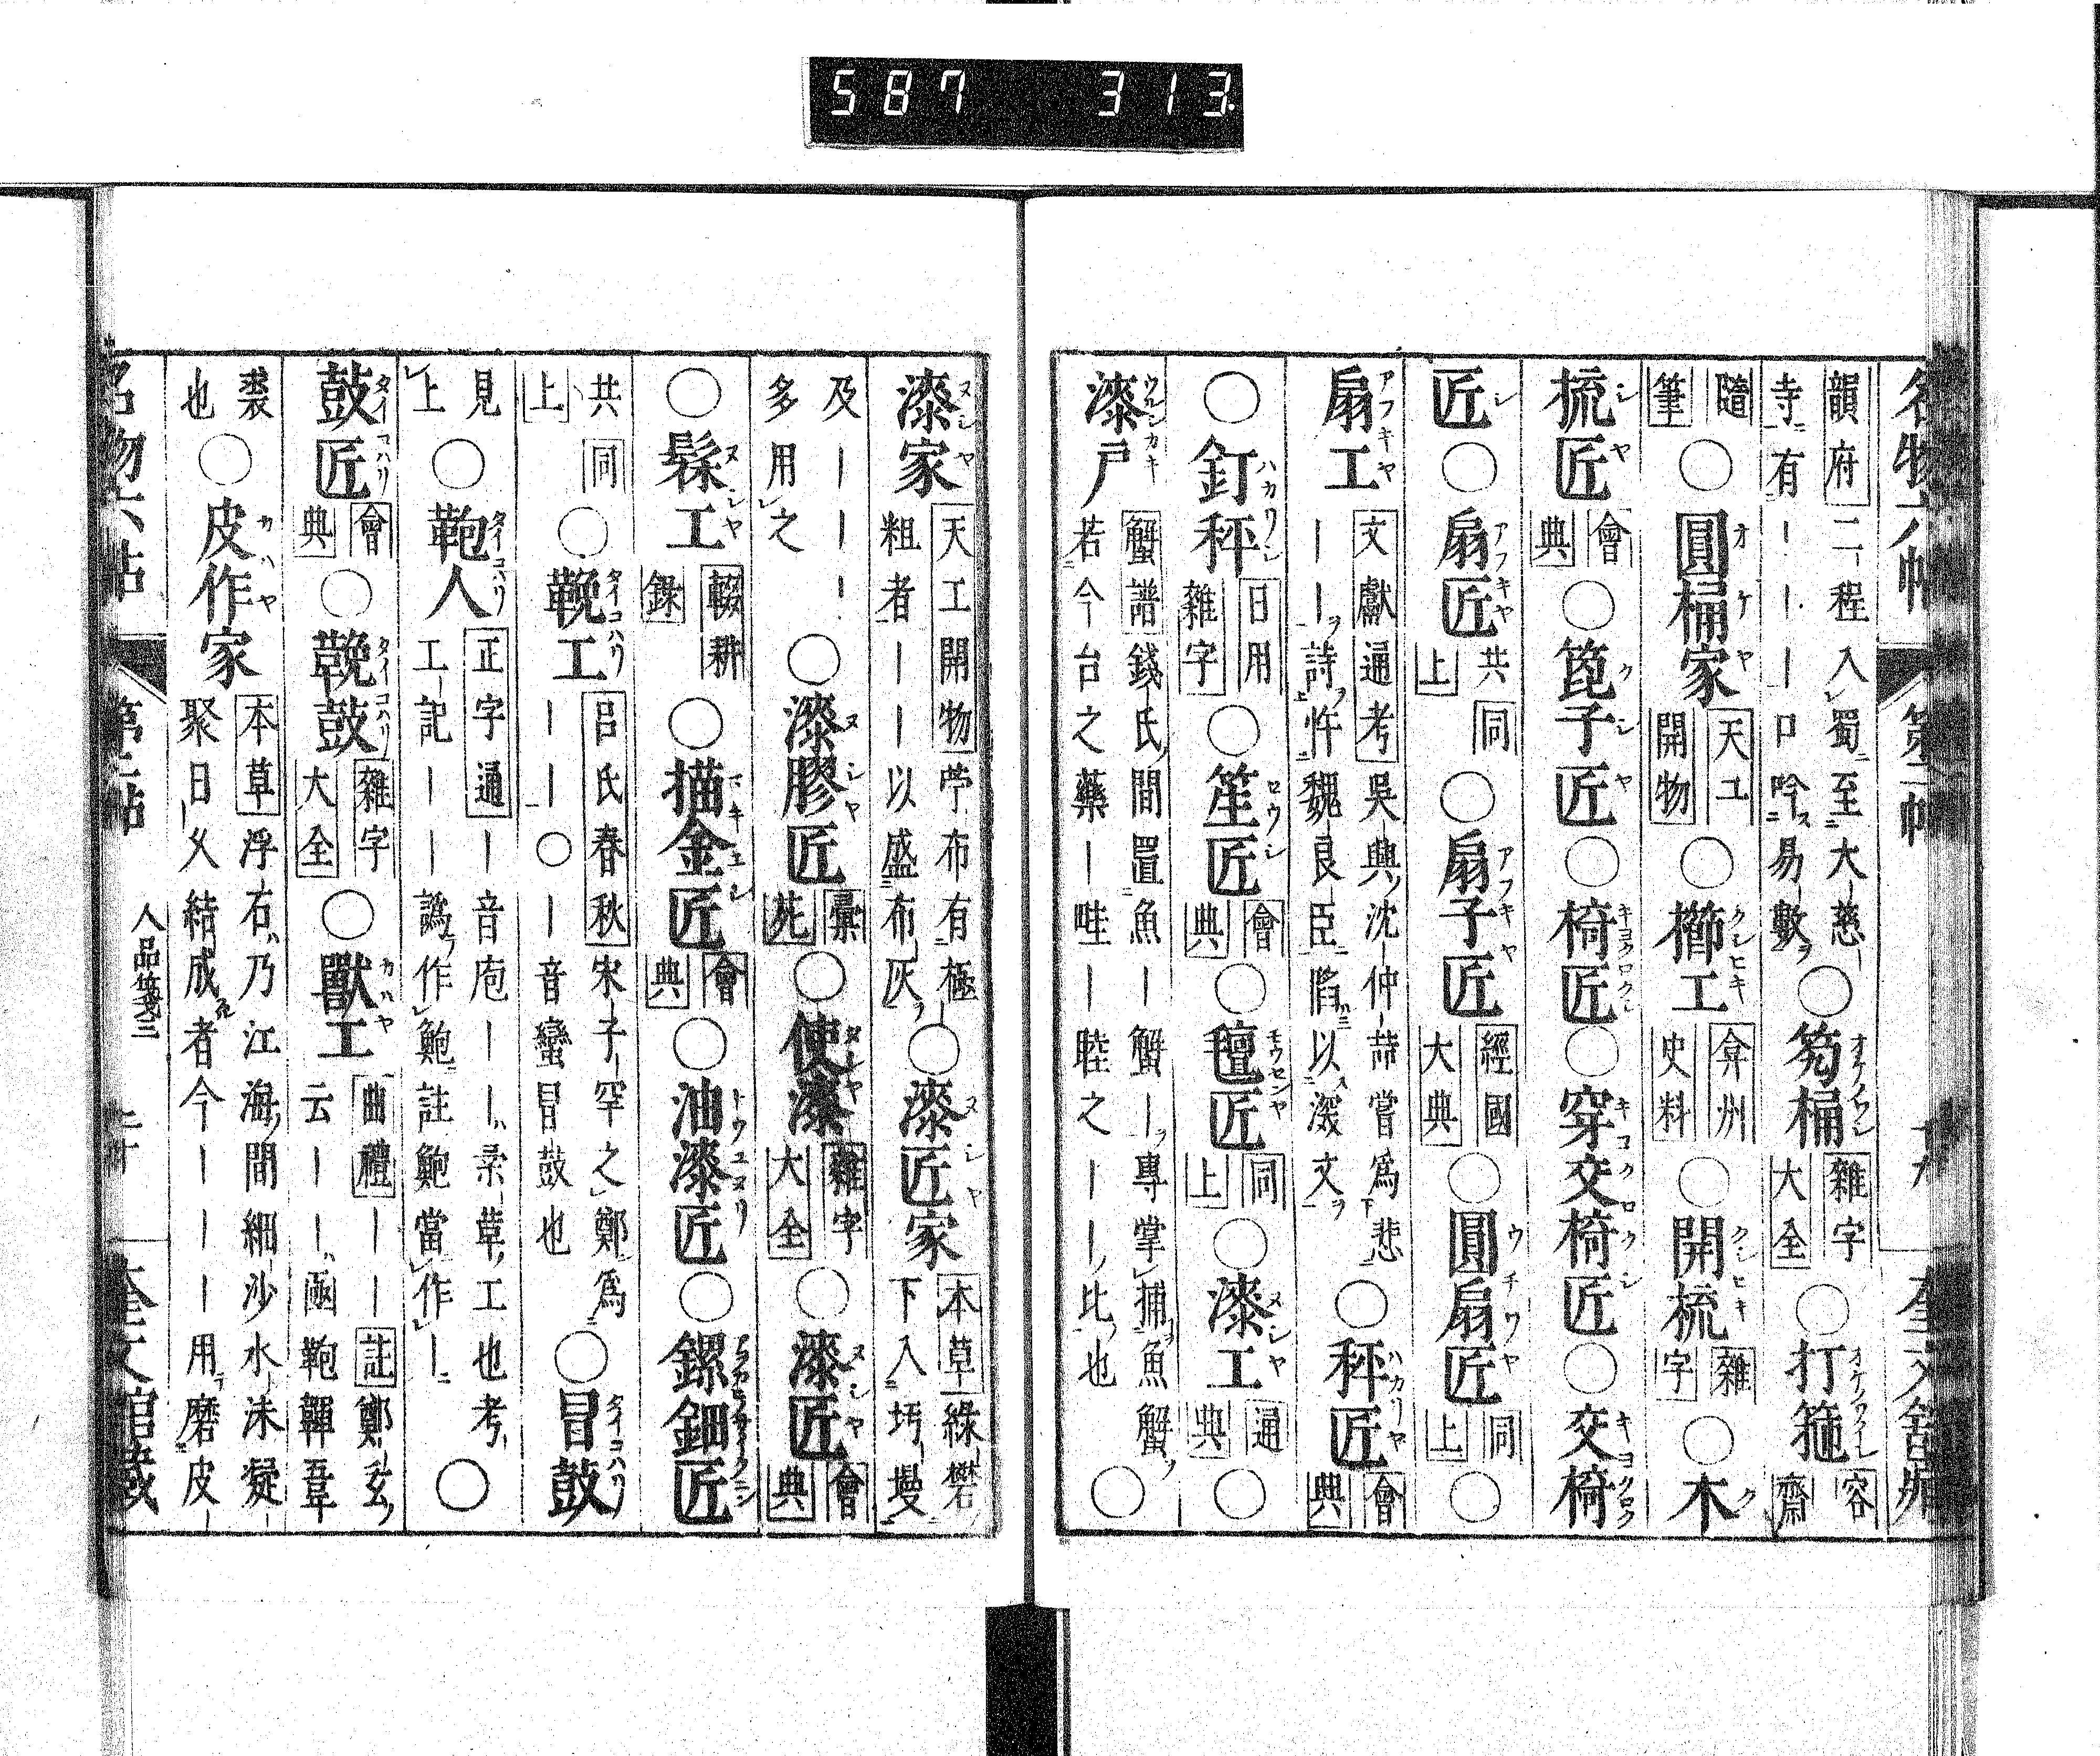 587 313.
韻府二程入蜀至大慈
寺有｜｜｜口吟易數○笏桶雜字大全○打箍容齋
隨筆○圓桶家天工開物○櫛工弇州史料○開梳雜字○木
梳匠會典○箆子匠○椅匠○穿交椅匠○交椅
匠○扇匠共同上○扇子匠經國大典○圓扇匠同上○
扇工文獻通考吳興沈仲喆嘗爲悲
｜｜詩忤魏良臣陷以深文○秤匠會典
○釘秤日用雜字○笙匠會典○氊匠同上○漆工通典○
漆戸蟹譜錢氏間置魚｜蟹｜專掌捕魚蟹
若今台之藥｜畦｜睦之｜｜比也○
漆家天工開物苧布有極
粗者｜｜以盛布灰○漆匠家本草綠礬
下入圬墁
及｜｜｜
多用之○漆膠匠彙苑○使漆雜字大全○漆匠會典
○髹工輟耕錄○描金匠會典○油漆匠○鏍鈿匠
共同上○鞔工呂氏春秋宋子罕之鄭爲
｜｜○｜音蠻冒鼓也○冒鼓
見上○鞄人正字通｜音庖｜｜柔草工也考
工記｜｜譌作鮑註鮑當作｜○
鼓匠會典○鞔鼓雜字大全○獸工曲禮｜｜註鄭玄
云｜｜函鞄韗韋
裘也○皮作家本草浮石乃江海間細沙水沫凝
聚日乂結成者今｜｜｜用磨皮
名物六帖
第二帖
人品箋三
二十
奎文館藏